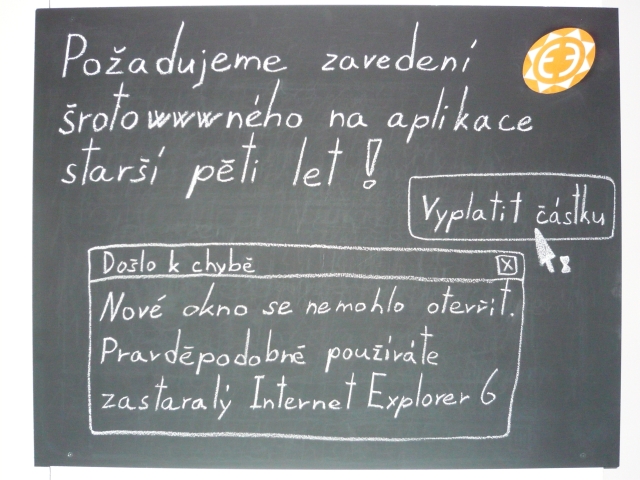 Požadujeme zavedení
šrotowwwného na aplikace
starší pěti let!
Vyplatit částku
Došlo k chybě X
Nové okno se nemohlo otevřit.
Pravděpodobně používáte
zastaralý Internet Explorer 6